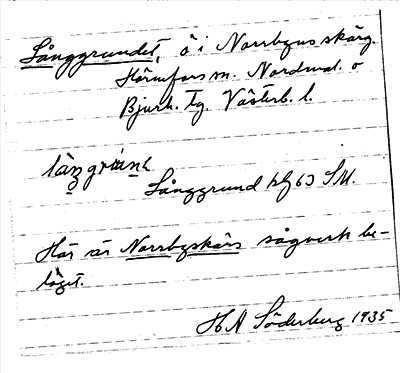 Långgrundet, ö i Norrbyns skärg.
Hörnefors sn. Nordmal. o
Bjurh. Tg. Västerb. l.
Långgrund blg 63 SM.
Här är Norrbyskärs sågverk be-
läget.
H A Söderberg 1935